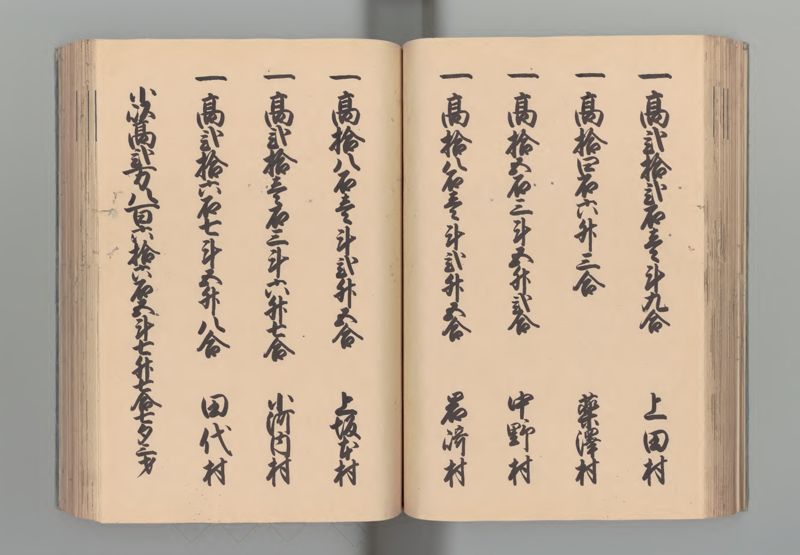 一高弐拾弐石壱斗九合 上田村
一高拾四石六升三合 藥澤村
一高拾五石三斗五升弐合 中野村
一高拾八石壱斗弐升五合 岩崎村
一高拾八石壱斗弐升五合 上坂本村
一高弐拾壱石三斗六升七合 小河内村
一高弐拾六石七斗五升八合 田代村
小以高弐万八百六拾六石五斗七升七合七夕二才